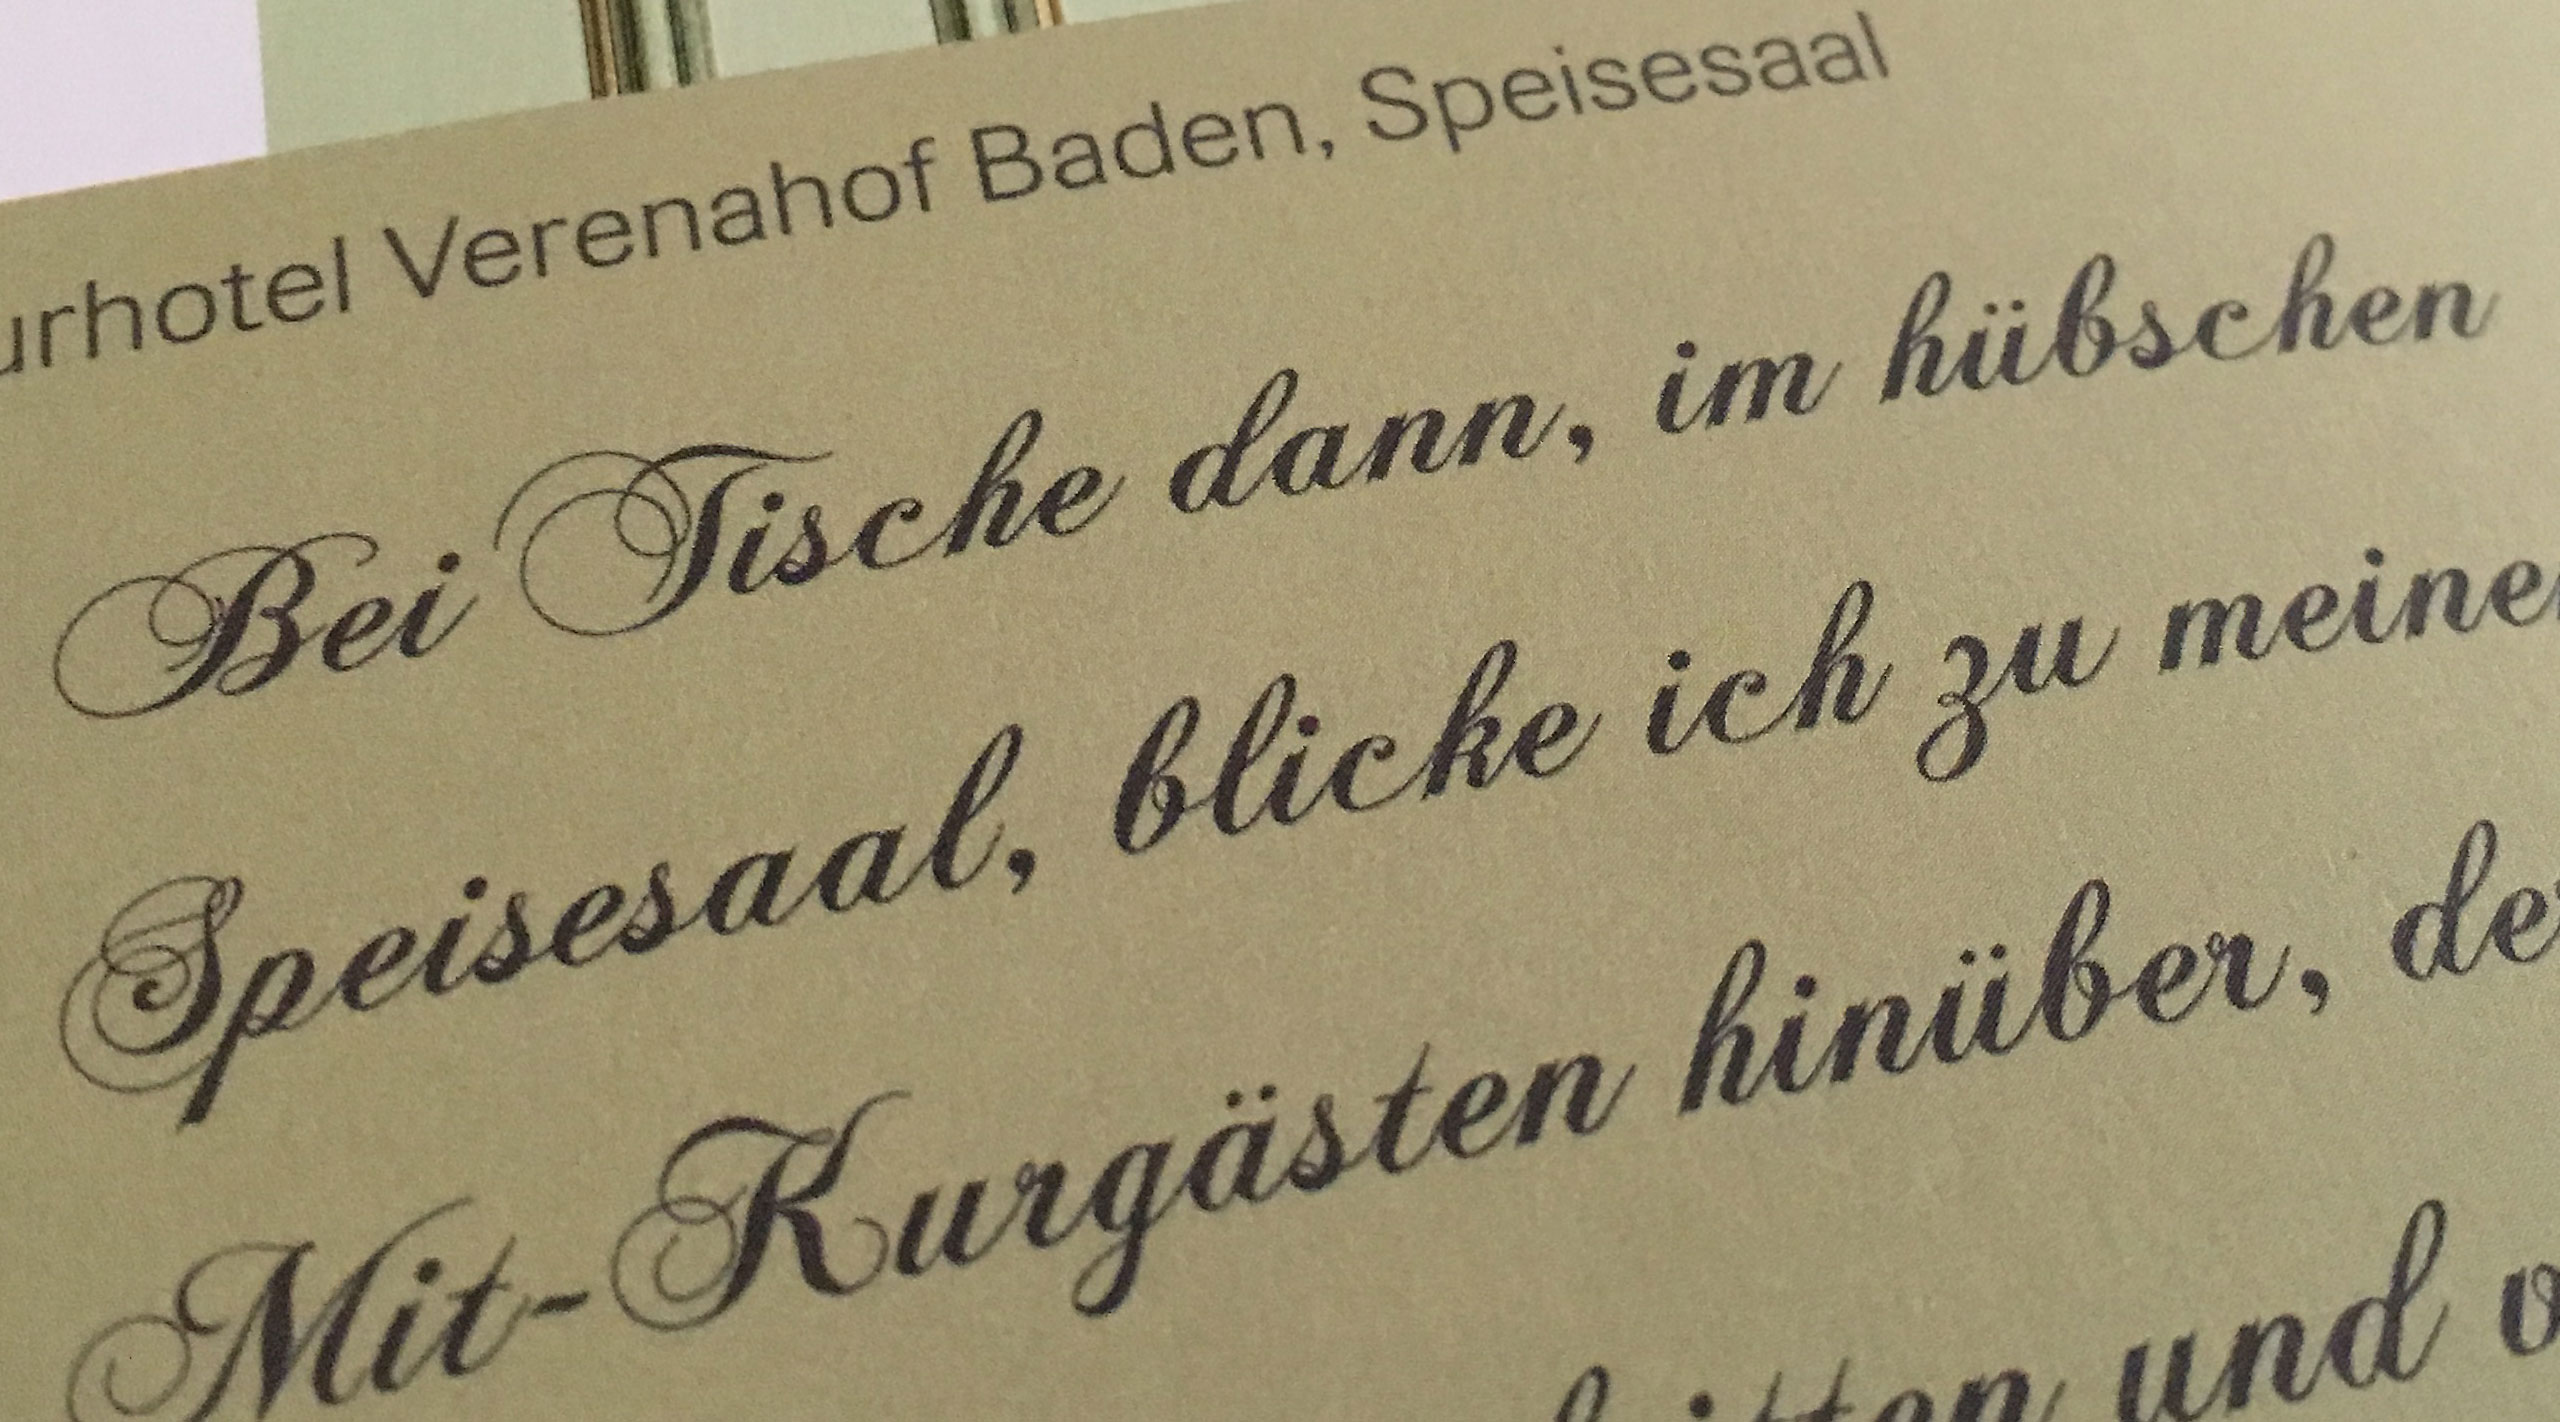 urhotel Verenahof Baden, Speisesaal
Bei Tische dann, im hübschen
Speisesaal, blicke ich zu meine
Mit-Kurgästen hinüber, de
und